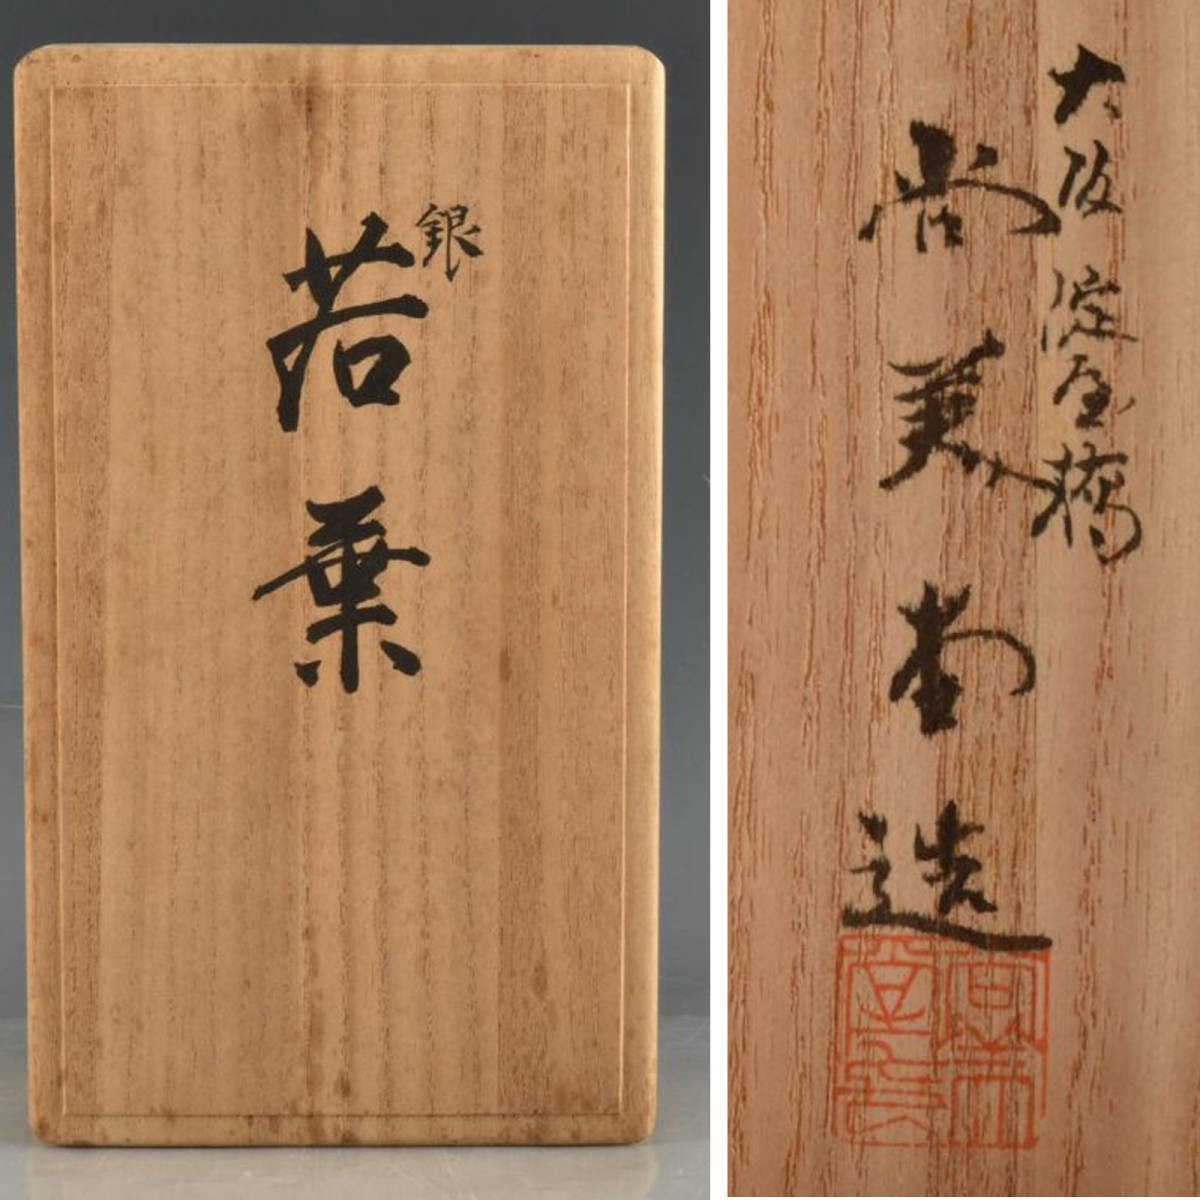 銀
若葉
大阪淀屋橋
尚美堂造